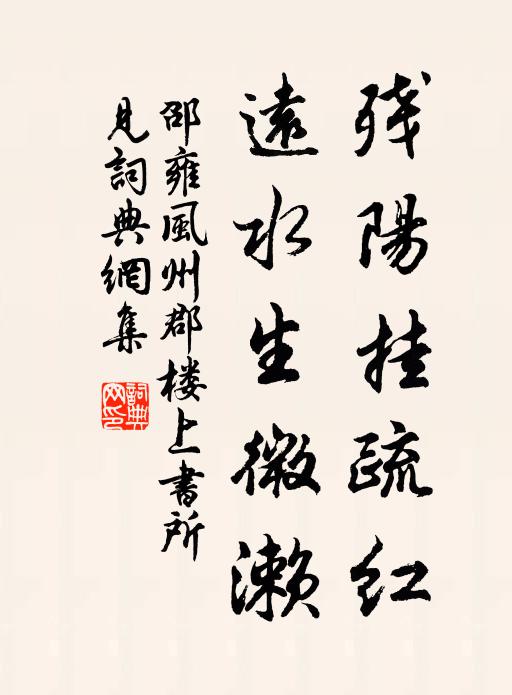 残陽挂疏红
遠水生微濑
邵雍風州郡楼上書所
見詞典網集
詞典网印